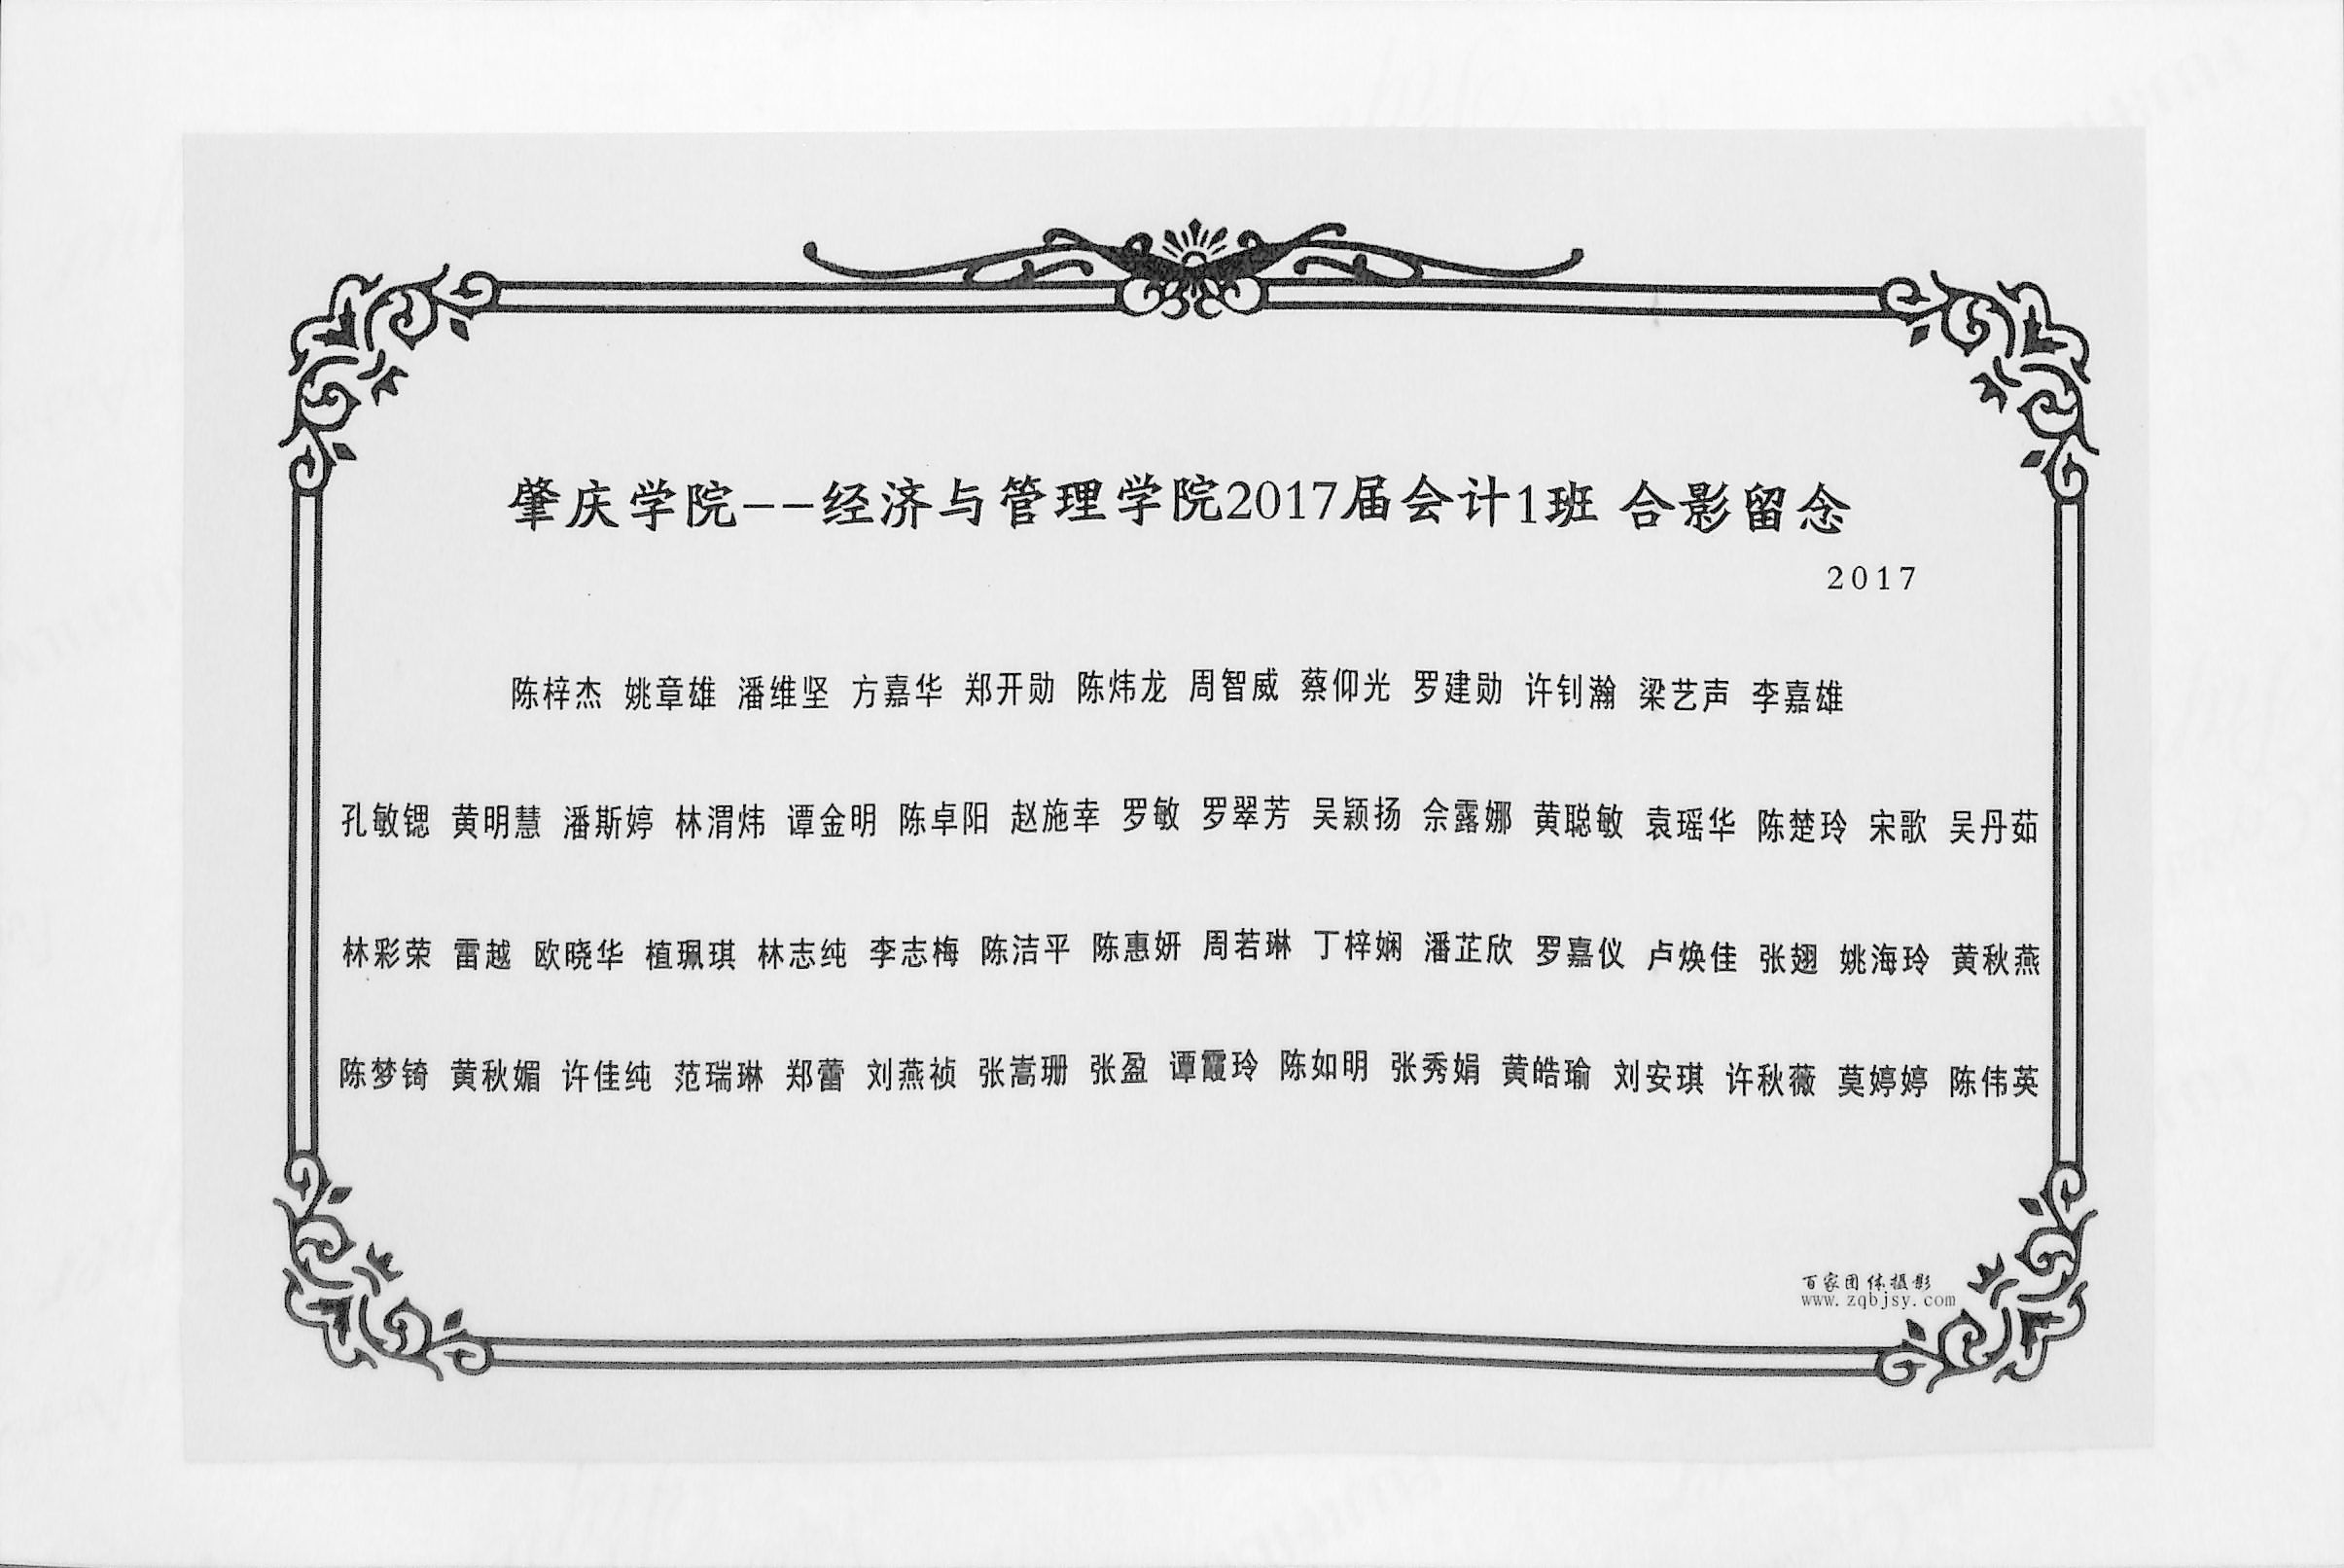 肇庆学院--经济与管理学院2017届会计1班 合影留念
2017
陈梓杰 姚章雄 潘维坚 方嘉华 郑开勋 陈炜龙 周智威 蔡仰光 罗建勋 许钊瀚 梁艺声 李嘉雄
孔敏锶 黄明慧 潘斯婷 林渭炜 谭金明 陈卓阳 赵施幸 罗敏 罗翠芳 吴颖扬 佘露娜 黄聪敏 袁瑶华 陈楚玲 宋歌 吴丹茹
林彩荣 雷越 欧晓华 植珮琪 林志纯 李志梅 陈洁平 陈惠妍 周若琳 丁梓娴 潘芷欣 罗嘉仪 卢焕佳 张翅 姚海玲 黄秋燕
陈梦锜 黄秋媚 许佳纯 范瑞琳 郑蕾 刘燕祯 张嵩珊 张盈 谭霞玲 陈如明 张秀娟 黄皓瑜 刘安琪 许秋薇 莫婷婷 陈伟英
百家团体摄影
www.zqbjsy.com